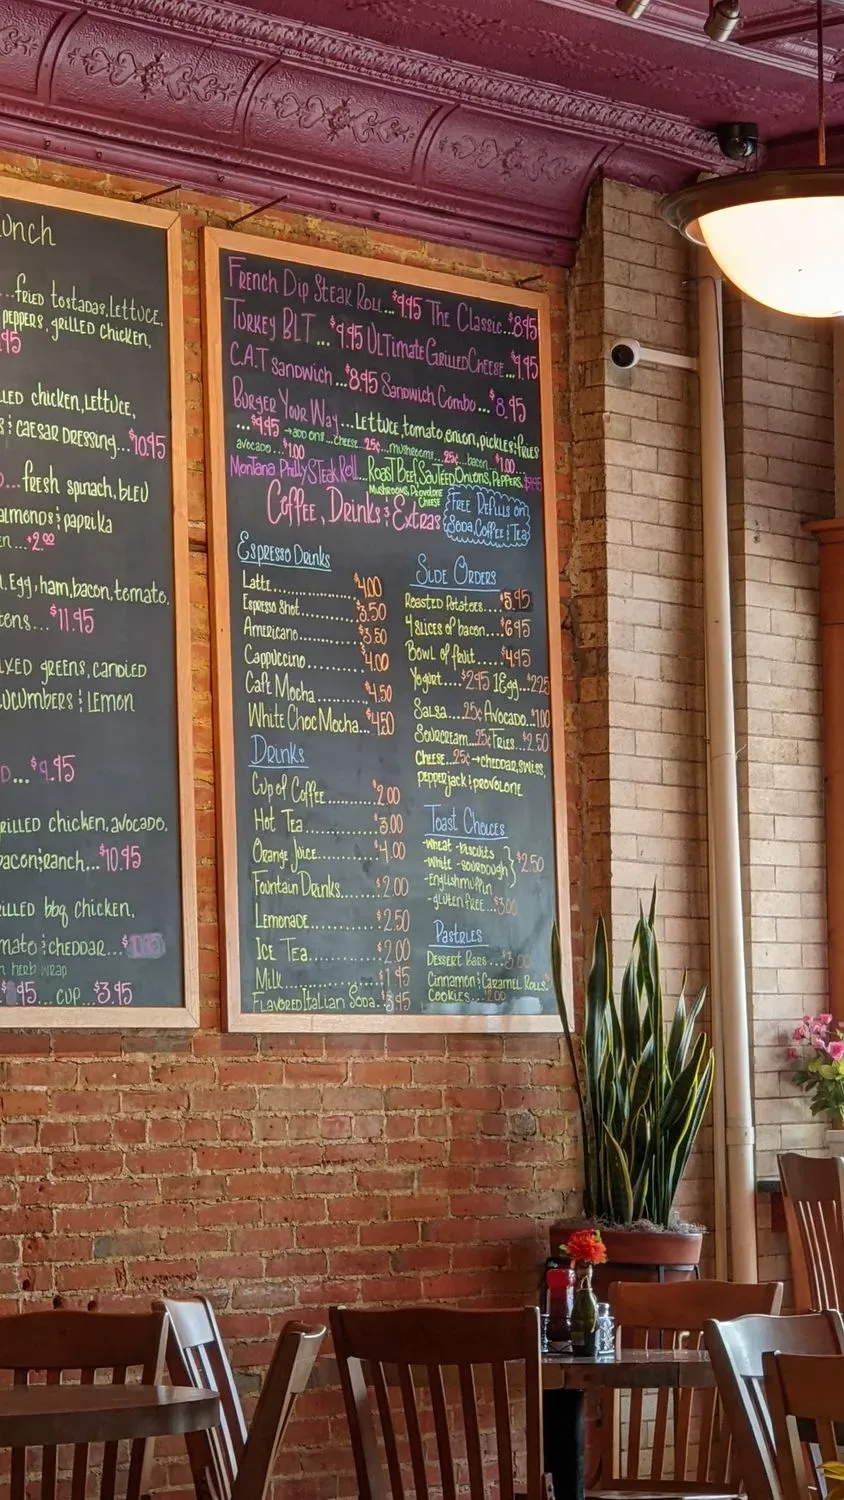 unch
...fried tostadas, lettuce,
peppers, grilled chicken,
95
lled chicken, lettuce,
s & caesar dressing...$10.95
...fresh spinach, bleu
almonds & paprika
en...$2.00
, egg, ham, bacon, tomato,
tons...$11.95
ixed greens, candied
ucumbers & lemon
D...$9.95
rilled chicken, avocado,
bacon & ranch...$10.95
illed bbq chicken,
mato & cheddar...
n herb wrap
95...cup...$3.95
French Dip Steak Roll...$9.95 The Classic...$8.95
Turkey BLT...$9.95 Ultimate Grilled Cheese...$9.95
C.A.T sandwich...$8.95 Sandwich Combo...$8.95
Burger Your Way...Lettuce, tomato, onion, pickles & fries
...$9.95 →add ons...cheese...25¢...mushrooms...25¢...bacon...$1.00...
avocado...$1.00
Montana Philly Steak Roll...Roast Beef, Sauteed Onions, Peppers,
Mushrooms, Provolone
Cheese
Coffee, Drinks & Extras
Free Refills on
Soda, Coffee & Tea
Espresso Drinks
Latte...$4.00
Espresso Shot...$3.50
Americano...$3.50
Cappuccino...$4.00
Cafe Mocha...$4.50
White Choc Mocha...$4.50
Drinks
Cup of Coffee...$2.00
Hot Tea...$3.00
Orange Juice...$4.00
Fountain Drinks...$2.00
Lemonade...$2.50
Ice Tea...$2.00
Milk...$1.95
Flavored Italian Soda...$3.95
Side Orders
Roasted Potatoes...$5.95
4 slices of bacon...$6.95
Bowl of fruit...$4.95
Yogurt...$2.95 1 Egg...$2.25
Salsa...25¢ Avocado...$1.00
Sourcream...25¢ Fries...$2.50
Cheese...25¢ →cheddar, swiss,
pepperjack & provolone
Toast Choices
-wheat -biscuits
-white -sourdough } $2.50
-english muffin
-gluten free...$3.00
Pastries
Dessert Bars...$3.00
Cinnamon & Caramel Rolls
Cookies...$2.00